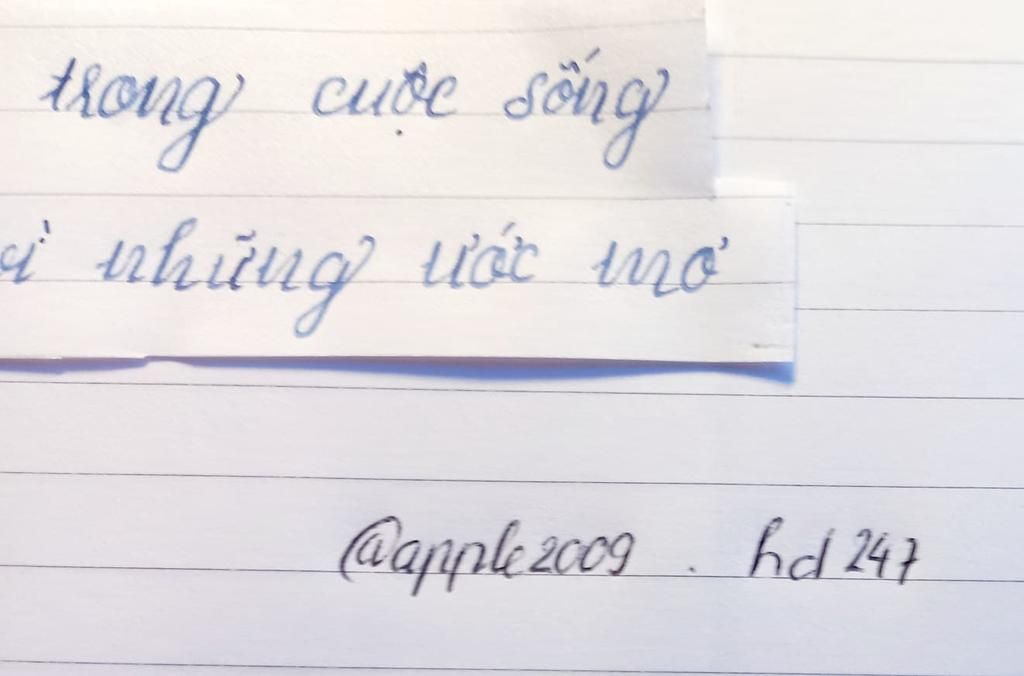 trong cuộc sống
những ước mơ
@apple2009 . hd 247